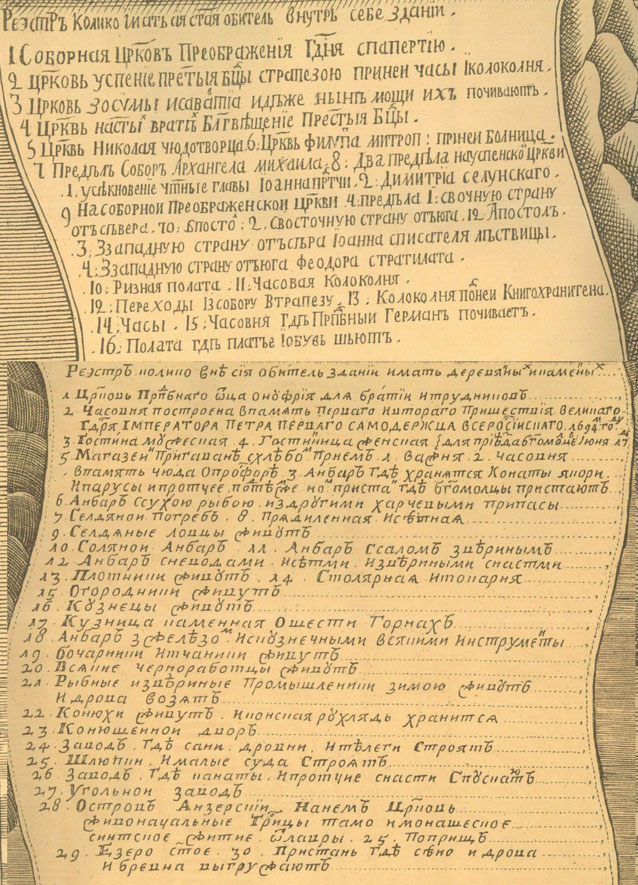 Реэстръ колико имать сия стая обитель внутрь себе здании.
1 Соборная црковь Преображения Гдня спапертию.
2 црковь успение престыя бцы странезою принеи часы iколоколня.
3 Црковь зосимы исаватиа идѣже нынѣ мощи ихъ почиваютъ.
4 Црквь насты вратѣ Блговѣщение Престыя Бцы.
5 Црквь Николая чюдотворца. 6. Црквь филипа митроп: принеи болница.
7 Предѣлъ Соборъ Архангела михаила. 8: Два предѣла науспенскои цркви
1. усѣкновение чтныя главы Iоаннапртчи. 2. Димитриа селунскаго.
9 Насоборнои Преображенскои Цркви 4. предѣла 1: свочную страну
отъсѣвера. 70: Апосто. 2. Свосточную страну отъюга. 12. Апостолъ.
3. Ззападную страну отъсѣра Iоанна списателя лѣствицы.
4. Ззападную страну отъюга феодора стратилата.
10: Ризная полата. 11: Часовая Колоколня.
12: Переходы Iзсобору Втрапезу. 13: Колоколня понеи Книгохранителна.
14: Часы. 15: Часовня Гдѣ Прпбныи Германъ почиваетъ.
16: Полата гдѣ платье Iобувь шьютъ.
Реэстръ колико внѣ сия обитель здании имать деревяныхъ икаменыхъ.
1 Црковь Прпбнаго Оца онофрия для братии итрудниковъ
2 Часовня построена впамять перваго ивтораго пришествия великаго
Гдря Императора Петра перваго самодержца всеросиискаго. 1694 го
3. Гостина мужеская. 4. Гостинница женская для приѣда бгомоцовъ июня 17
5 Магазеи Пригаване схлѣбо Приемъ. 1. важня. 2. Часовня
впамять чюда Опросфорѣ. 3. Анбаръ гдѣ хранятся Конаты якори
ипарусы ипротчее потѣже но приста гдѣ бгомолцы пристаютъ
6. Анбаръ Ссухою рыбою издругими харчевыми припасы
7 Селдянои погребъ. 8. Прядиленная исѣтная
9. Селдяные ловцы живутъ
10. Солянои Анбаръ. 11. Анбаръ Ссаломъ звѣринымъ
12 Анбаръ снеподами. исѣтми. извѣриными снастми
13. Плотники живутъ. 14. Столярная итокарня
15. Огородники живутъ
16. Кузнецы живутъ
17. Кузница каменная Ошести Горнахъ
18. Анбаръ зжелѣзомъ искузнечными всякими инструменты
19. бочарники итчаники живутъ
20. Всякие чернорабоцы живутъ
21. Рыбные извѣриные Промышленники зимою живутъ
и дрова возятъ
22. Конюхи живутъ. иконская рухлядь хранится
23. Конюшеннои дворъ
24. Заводъ. Гдѣ сани. дровни. итѣлеги Строятъ
25. Шлюпки. ималые суда Строятъ
26. Заводъ. Гдѣ канаты. ипротчие снасти Спускаютъ
27. Угольнои заводъ
28. Островъ Анзерскии. Нанемъ Црковь
Живоначальные Трцы тамо имонашеское
скитское житие. Олавры. 25. Поприщъ
29. Езеро стое. 30. Пристань Гдѣ сѣно и дрова
и бревна выгружаютъ